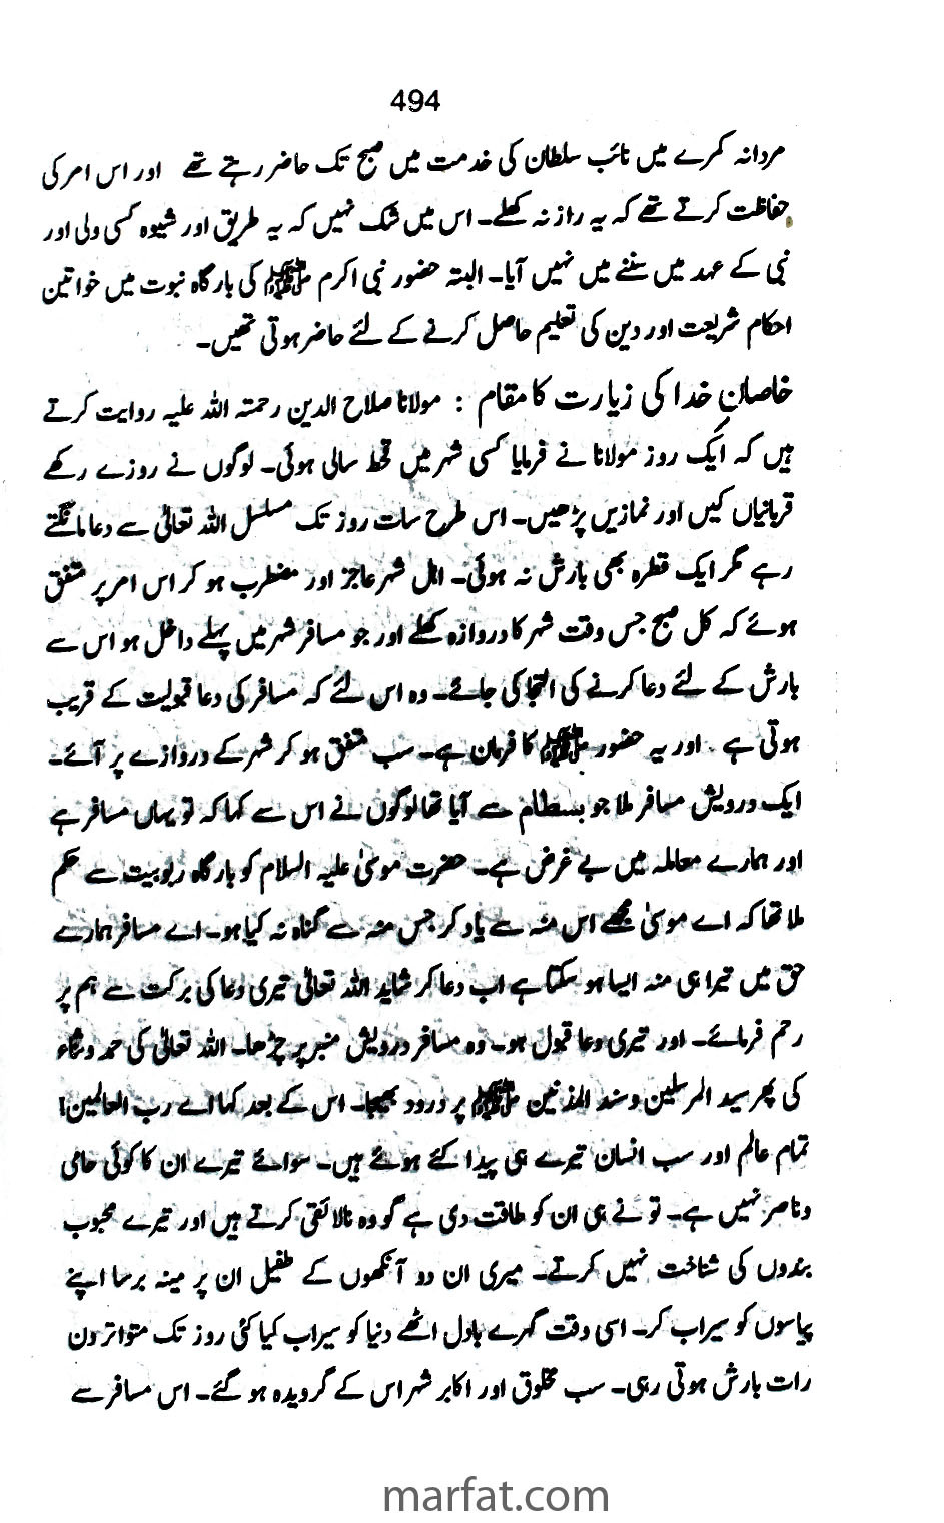 494
مردانہ کمرے میں نائب سلطان کی خدمت میں صبح تک حاضر رہتے تھے اور اس امر کی
حفاظت کرتے تھے کہ یہ راز نہ کھلے۔ اس میں شک نہیں کہ یہ طریق اور شیوہ کسی ولی اور
نبی کے عہد میں سننے میں نہیں آیا۔ البتہ حضور نبی اکرم ﷺ کی بارگاہ نبوت میں خواتین
احکام شریعت اور دین کی تعلیم حاصل کرنے کے لئے حاضر ہوتی تھیں۔
خاصانِ خدا کی زیارت کا مقام : مولانا صلاح الدین رحمتہ اللہ علیہ روایت کرتے
ہیں کہ ایک روز مولانا نے فرمایا کسی شہر میں قحط سالی ہوئی۔ لوگوں نے روزے رکھے
قربانیاں کیں اور نمازیں پڑھیں۔ اس طرح سات روز تک مسلسل اللہ تعالیٰ سے دعا مانگتے
رہے مگر ایک قطرہ بھی بارش نہ ہوئی۔ اہل شہر عاجز اور مضطرب ہو کر اس امر پر متفق
ہوئے کہ کل صبح جس وقت شہر کا دروازہ کھلے اور جو مسافر شہر میں پہلے داخل ہو اس سے
بارش کے لئے دعا کرنے کی التجا کی جائے۔ وہ اس لئے کہ مسافر کی دعا قبولیت کے قریب
ہوتی ہے۔ اور یہ حضور ﷺ کا فرمان ہے۔ سب متفق ہو کر شہر کے دروازے پر آئے۔
ایک درویش مسافر ملا جو بسطام سے آیا تھا لوگوں نے اس سے کہا کہ تو یہاں مسافر ہے
اور ہمارے معاملہ میں بے غرض ہے۔ حضرت موسیٰ علیہ السلام کو بارگاہ ربوبیت سے حکم
ملا تھا کہ اے موسیٰ مجھے اس منہ سے یاد کر جس منہ سے گناہ نہ کیا ہو۔ اے مسافر ہمارے
حق میں تیرا ہی منہ ایسا ہو سکتا ہے اب دعا کر شاید اللہ تعالیٰ تیری دعا کی برکت سے ہم پر
رحم فرمائے۔ اور تیری دعا قبول ہو۔ وہ مسافر درویش منبر پر چڑھا۔ اللہ تعالیٰ کی حمد و ثناء
کی پھر سید المرسلین و سند المذنبین ﷺ پر درود بھیجا۔ اس کے بعد کہا اے رب العالمین!
تمام عالم اور سب انسان تیرے ہی پیدا کئے ہوئے ہیں۔ سوائے تیرے ان کا کوئی حامی
و ناصر نہیں ہے۔ تو نے ہی ان کو طاقت دی ہے گو وہ نالائقی کرتے ہیں اور تیرے محبوب
بندوں کی شناخت نہیں کرتے۔ میری ان دو آنکھوں کے طفیل ان پر مینہ برسا اپنے
پیاسوں کو سیراب کر۔ اسی وقت گہرے بادل اٹھے دنیا کو سیراب کیا کئی روز تک متواتر دن
رات بارش ہوتی رہی۔ سب مخلوق اور اکابر شہر اس کے گرویدہ ہو گئے۔ اس مسافر سے
marfat.com